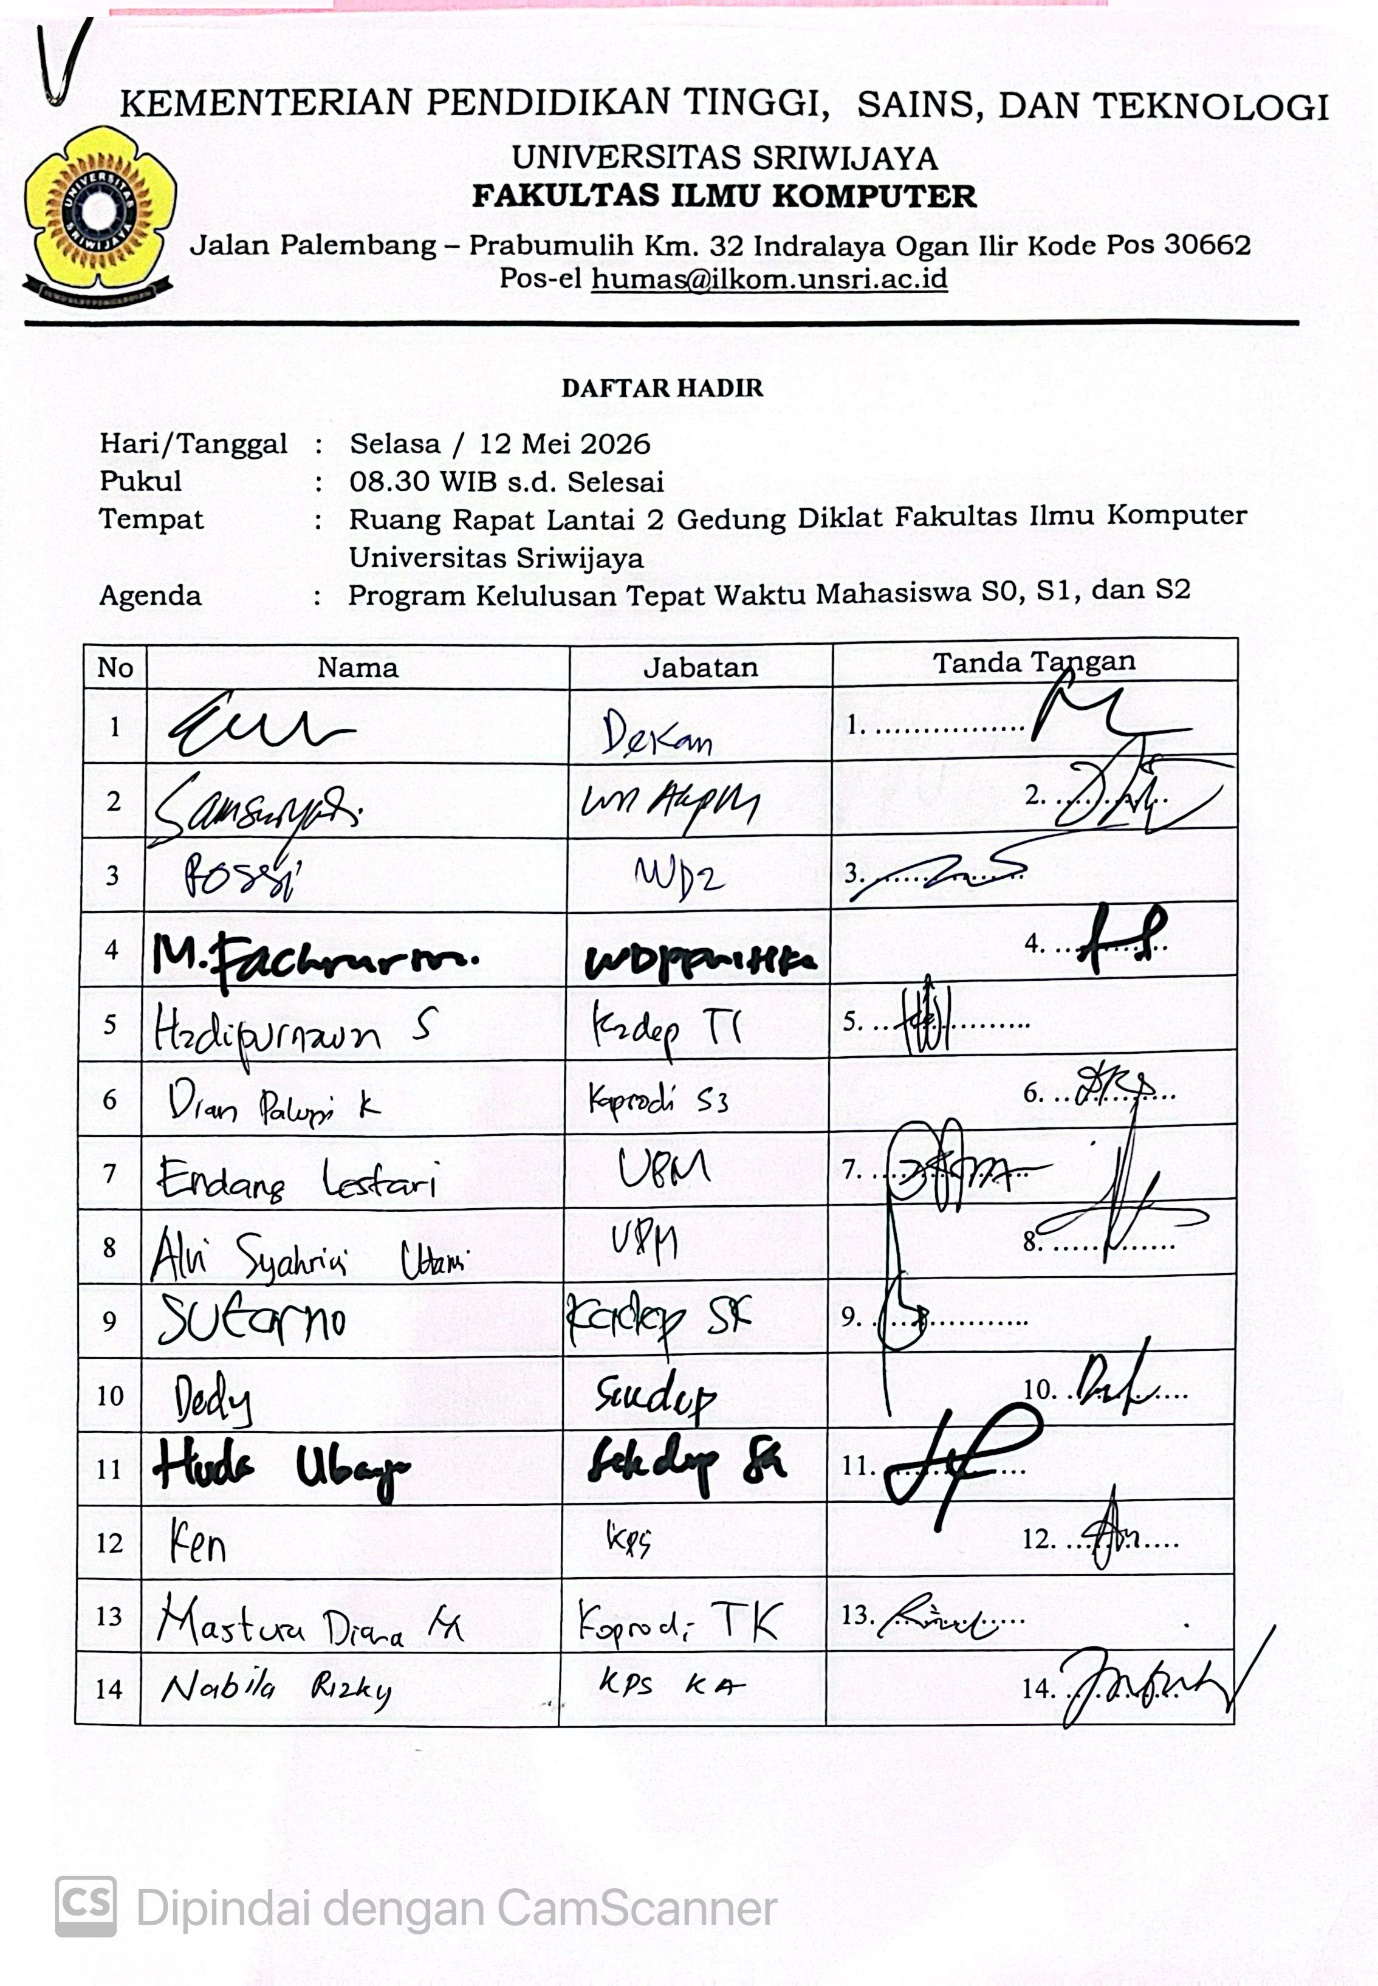 KEMENTERIAN PENDIDIKAN TINGGI, SAINS, DAN TEKNOLOGI
UNIVERSITAS SRIWIJAYA
FAKULTAS ILMU KOMPUTER
Jalan Palembang – Prabumulih Km. 32 Indralaya Ogan Ilir Kode Pos 30662
Pos-el humas@ilkom.unsri.ac.id
UNIVERSITAS SRIWIJAYA
DAFTAR HADIR
Hari/Tanggal : Selasa / 12 Mei 2026
Pukul : 08.30 WIB s.d. Selesai
Tempat : Ruang Rapat Lantai 2 Gedung Diklat Fakultas Ilmu Komputer
Universitas Sriwijaya
Agenda : Program Kelulusan Tepat Waktu Mahasiswa S0, S1, dan S2
No Nama Jabatan Tanda Tangan
1 Dekan 1. ................
2 Samsuryadi. 2. ............
3 Rossi WD2 3. ................
4 M. Fachrurrozi. 4. ............
5 Hadipurnawan S Kadep TI 5. ................
6 Dian Palupi K Kaprodi S3 6. ............
7 Endang Lestari UPM 7. ................
8 Alvi Syahrini Utami UPM 8. ............
9 Sutarno Kadep SK 9. ................
10 Dedy Sekdep 10. ............
11 Huda Ubaya Sekdep SK 11. ................
12 Ken KPS 12. ............
13 Mastura Diana M Koprodi TK 13. ................
14 Nabila Rizky KPS KA 14. ............
CS Dipindai dengan CamScanner